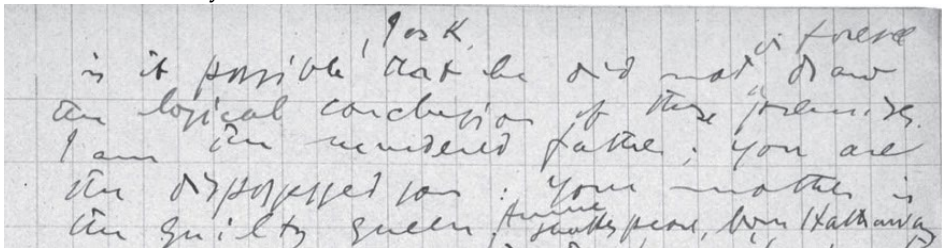 I ask, or foresee
is it possible, that he did not draw
the logical conclusion of those premises.
I am the murdered father; you are
the dispossessed son: your mother is
the guilty queen, Anne Shakespeare, born Hathaway